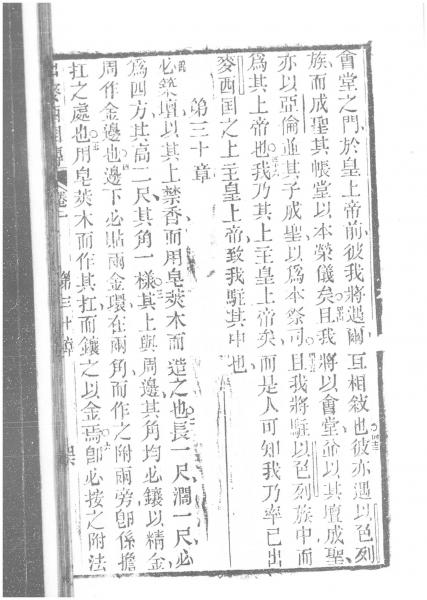 會堂之門於皇上帝前彼我將遇爾互相敘也彼亦遇以色列
族而成聖其帳堂以本榮儀矣且我將以會堂並以其壇成聖
亦以亞倫並其子成聖以爲本祭司且我將駐以色列族中而
爲其上帝也我乃其上主皇上帝矣而是人可知我乃率已出
麥西國之上主皇上帝致我駐其中也
第三十章
必築壇以其上焚香而用皂莢木而造之也長一尺濶一尺必
爲四方其高二尺其角一樣其上與周邊其角均必鑲以精金
周作金邊也邊下必貼兩金環在兩角而作之附兩旁卽係擔
扛之處也用皂莢木而作其扛而鑲之以金焉卽必按之附法
卷二
第三十章